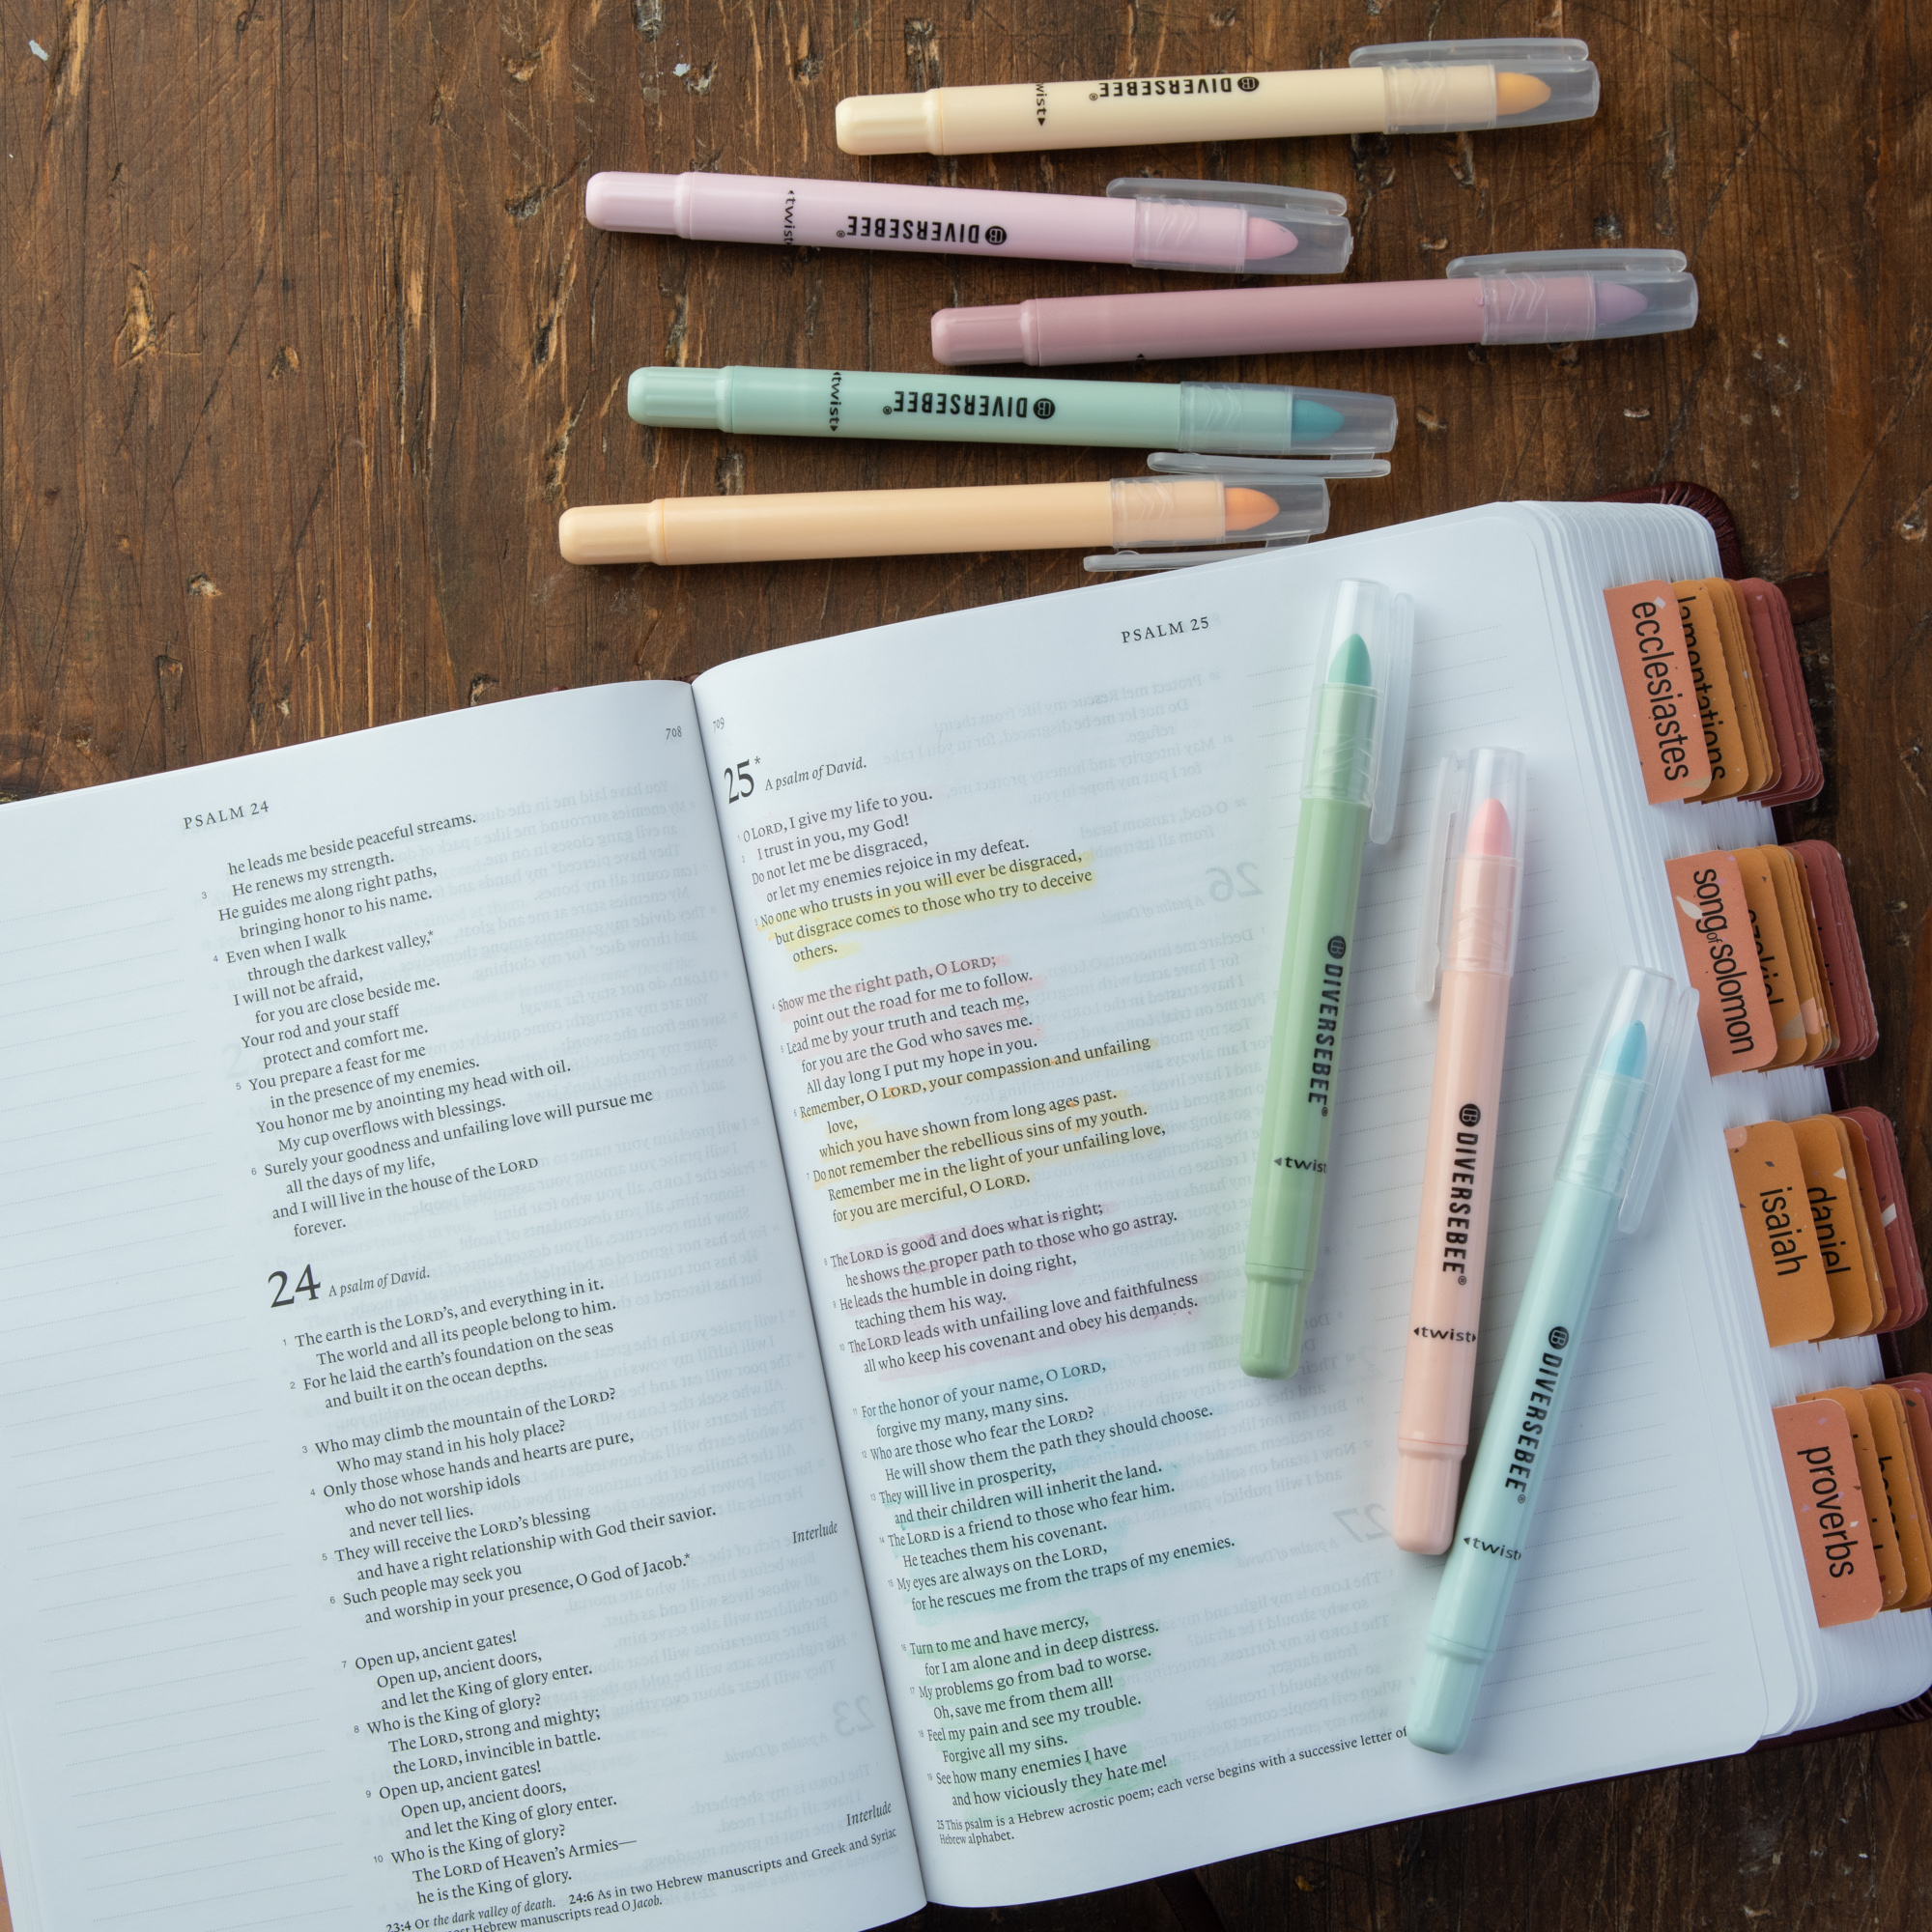 DIVERSEBEE®
twist
DIVERSEBEE®
twist
DIVERSEBEE®
twist
708
PSALM 24
he leads me beside peaceful streams.
3 He renews my strength.
He guides me along right paths,
bringing honor to his name.
4 Even when I walk
through the darkest valley,*
I will not be afraid,
for you are close beside me.
Your rod and your staff
protect and comfort me.
5 You prepare a feast for me
in the presence of my enemies.
You honor me by anointing my head with oil.
My cup overflows with blessings.
6 Surely your goodness and unfailing love will pursue me
all the days of my life,
and I will live in the house of the LORD
forever.
24 A psalm of David.
1 The earth is the LORD's, and everything in it.
The world and all its people belong to him.
2 For he laid the earth's foundation on the seas
and built it on the ocean depths.
3 Who may climb the mountain of the LORD?
Who may stand in his holy place?
4 Only those whose hands and hearts are pure,
who do not worship idols
and never tell lies.
5 They will receive the LORD's blessing
and have a right relationship with God their savior.
6 Such people may seek you
and worship in your presence, O God of Jacob.*
Interlude
7 Open up, ancient gates!
Open up, ancient doors,
and let the King of glory enter.
8 Who is the King of glory?
The LORD, strong and mighty;
the LORD, invincible in battle.
9 Open up, ancient gates!
Open up, ancient doors,
and let the King of glory enter.
10 Who is the King of glory?
The LORD of Heaven's Armies—
he is the King of glory.
Interlude
23:4 Or the dark valley of death. 24:6 As in two Hebrew manuscripts and Greek and Syriac
Hebrew manuscripts read O Jacob.
709
PSALM 25
25* A psalm of David.
1 O LORD, I give my life to you.
2 I trust in you, my God!
Do not let me be disgraced,
or let my enemies rejoice in my defeat.
3 No one who trusts in you will ever be disgraced,
but disgrace comes to those who try to deceive
others.
4 Show me the right path, O LORD;
point out the road for me to follow.
5 Lead me by your truth and teach me,
for you are the God who saves me.
All day long I put my hope in you.
6 Remember, O LORD, your compassion and unfailing
love,
which you have shown from long ages past.
7 Do not remember the rebellious sins of my youth.
Remember me in the light of your unfailing love,
for you are merciful, O LORD.
8 The LORD is good and does what is right;
he shows the proper path to those who go astray.
9 He leads the humble in doing right,
teaching them his way.
10 The LORD leads with unfailing love and faithfulness
all who keep his covenant and obey his demands.
11 For the honor of your name, O LORD,
forgive my many, many sins.
12 Who are those who fear the LORD?
He will show them the path they should choose.
13 They will live in prosperity,
and their children will inherit the land.
14 The LORD is a friend to those who fear him.
He teaches them his covenant.
15 My eyes are always on the LORD,
for he rescues me from the traps of my enemies.
16 Turn to me and have mercy,
for I am alone and in deep distress.
17 My problems go from bad to worse.
Oh, save me from them all!
18 Feel my pain and see my trouble.
Forgive all my sins.
19 See how many enemies I have
and how viciously they hate me!
25 This psalm is a Hebrew acrostic poem; each verse begins with a successive letter of
Hebrew alphabet.
DIVERSEBEE®
twist
DIVERSEBEE®
twist
DIVERSEBEE®
twist
ecclesiastes
lamentations
song of solomon
isaiah
daniel
proverbs